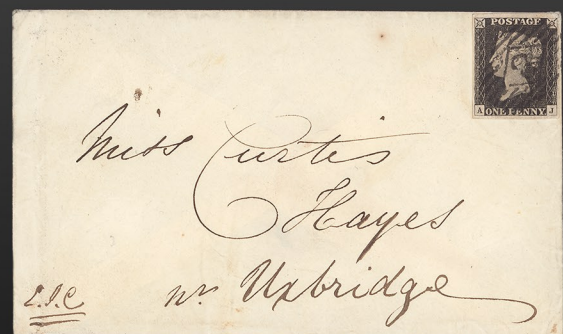 POSTAGE
A ONE PENNY J
Miss Curtis
Hayes
nr Uxbridge